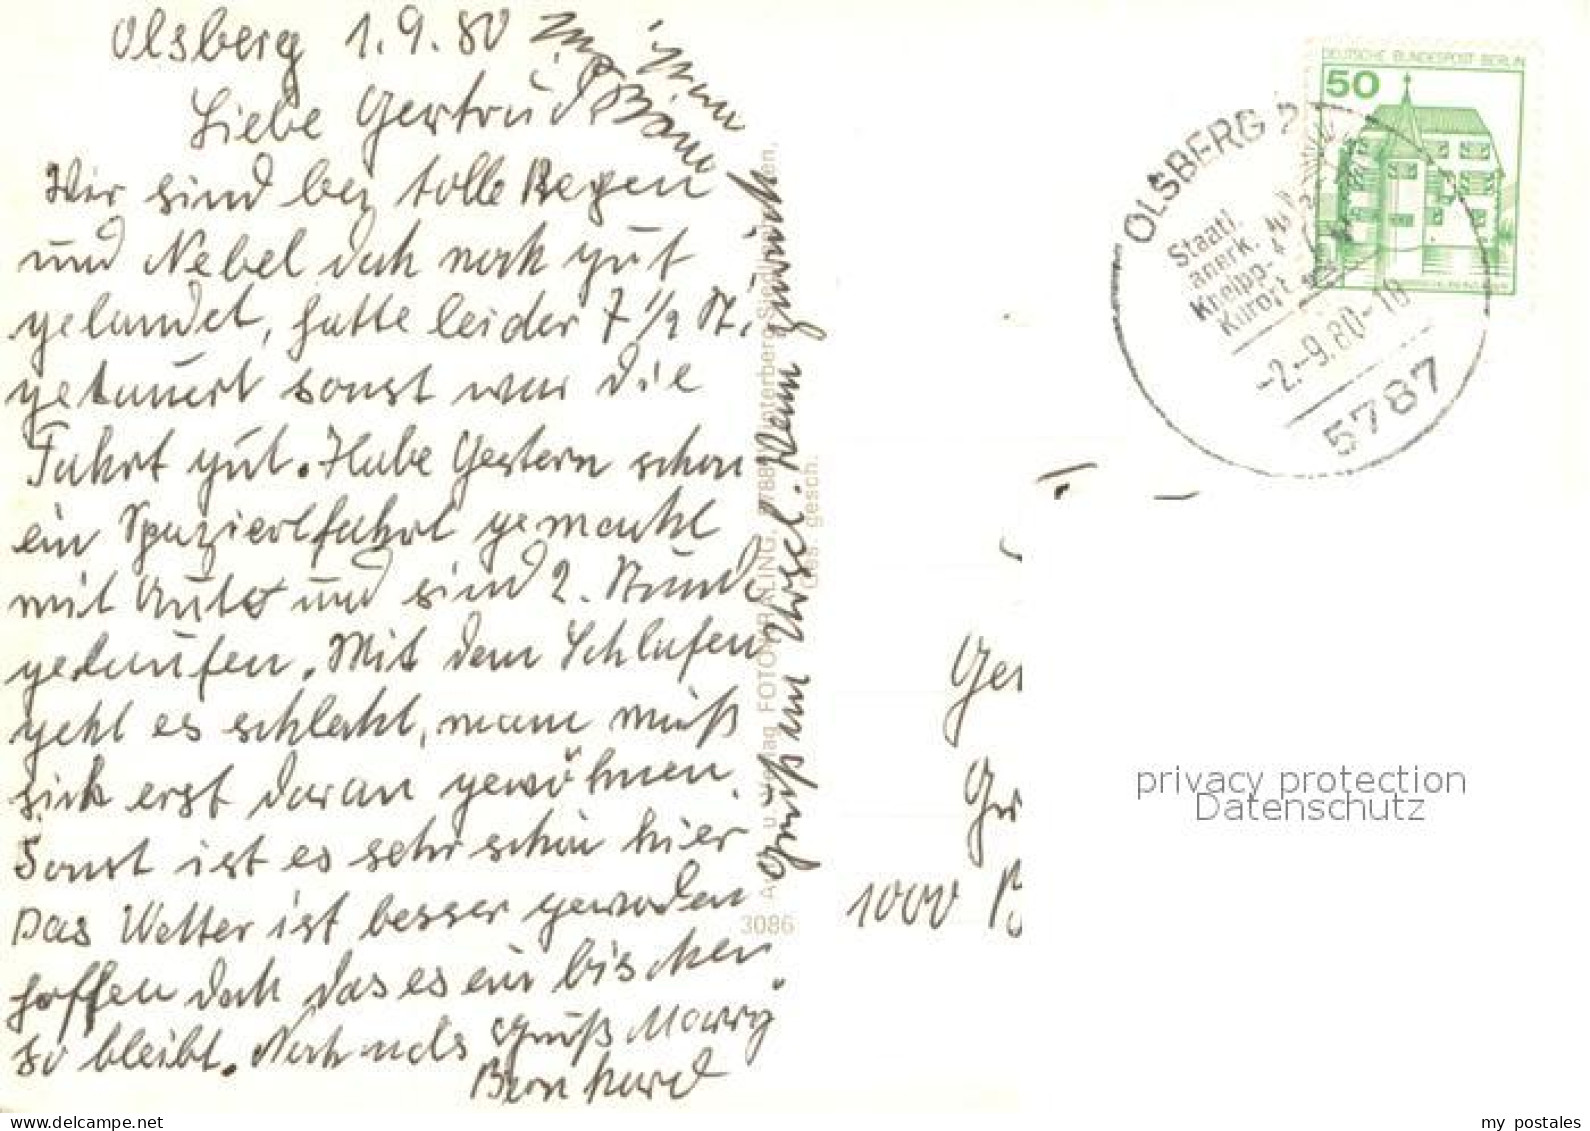 Olsberg 1.9.80
Liebe Gertrud
Wir sind bey tolle Regen
und Nebel doch noch gut
gelandet, hatte leider 7 1/2 St.
gedauert sonst war die
Fahrt gut. Habe Gestern schon
ein Spazierfahrt gemacht
mit Auto und sind 2. Stunde
gelaufen. Mit dem Schlafen
geht es schlecht, mann muß
sich erst daran gewöhnen.
Sonst ist es sehr schön hier
Das Wetter ist besser geworden
hoffen doch das es ein bischen
so bleibt. Nochmals Gruß Marry
Bernhard
Gruß an Ursel. Wenn
FOTOWERALING,
Winterberg-Siedlinghausen,
Ges. gesch.
3086
DEUTSCHE BUNDESPOST BERLIN
50
OLSBERG 2
Staatl.
anerk.
Kneipp-
Kurort
-2.-9.80-18
5787
Ger
1000 B
privacy protection
Datenschutz
www.delcampe.net
my_postales